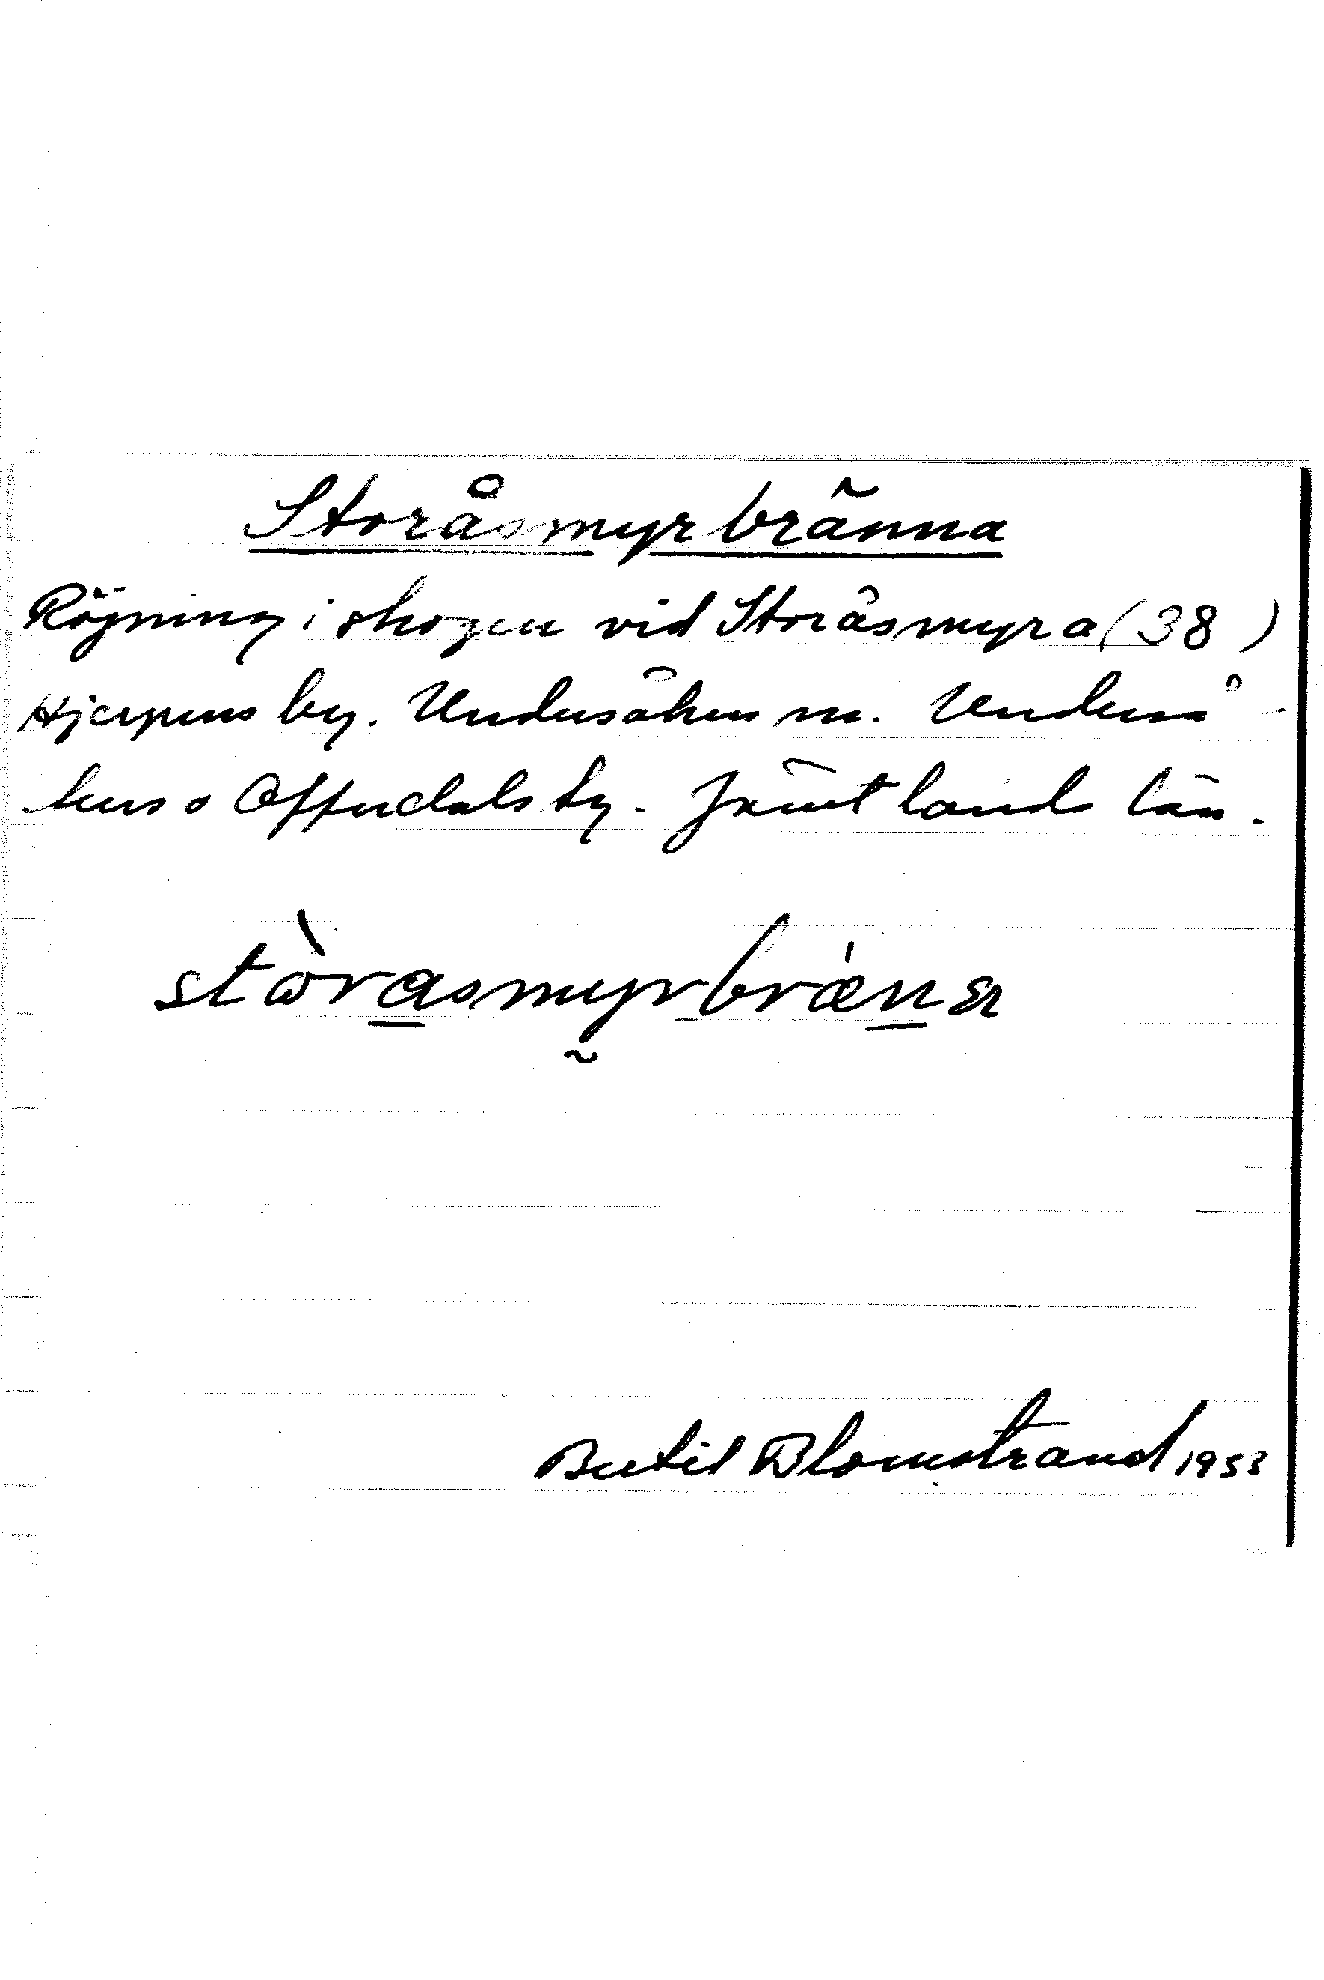 Storåsmyrbränna
Röjning i skogen vid Storåsmyra (38)
Hjerpens by. Undersåkers sn. Underså-
kers o Offerdals tg. Jämtlands län.
stòrasmyrbræ´na
Bertil Blomstrand 1953